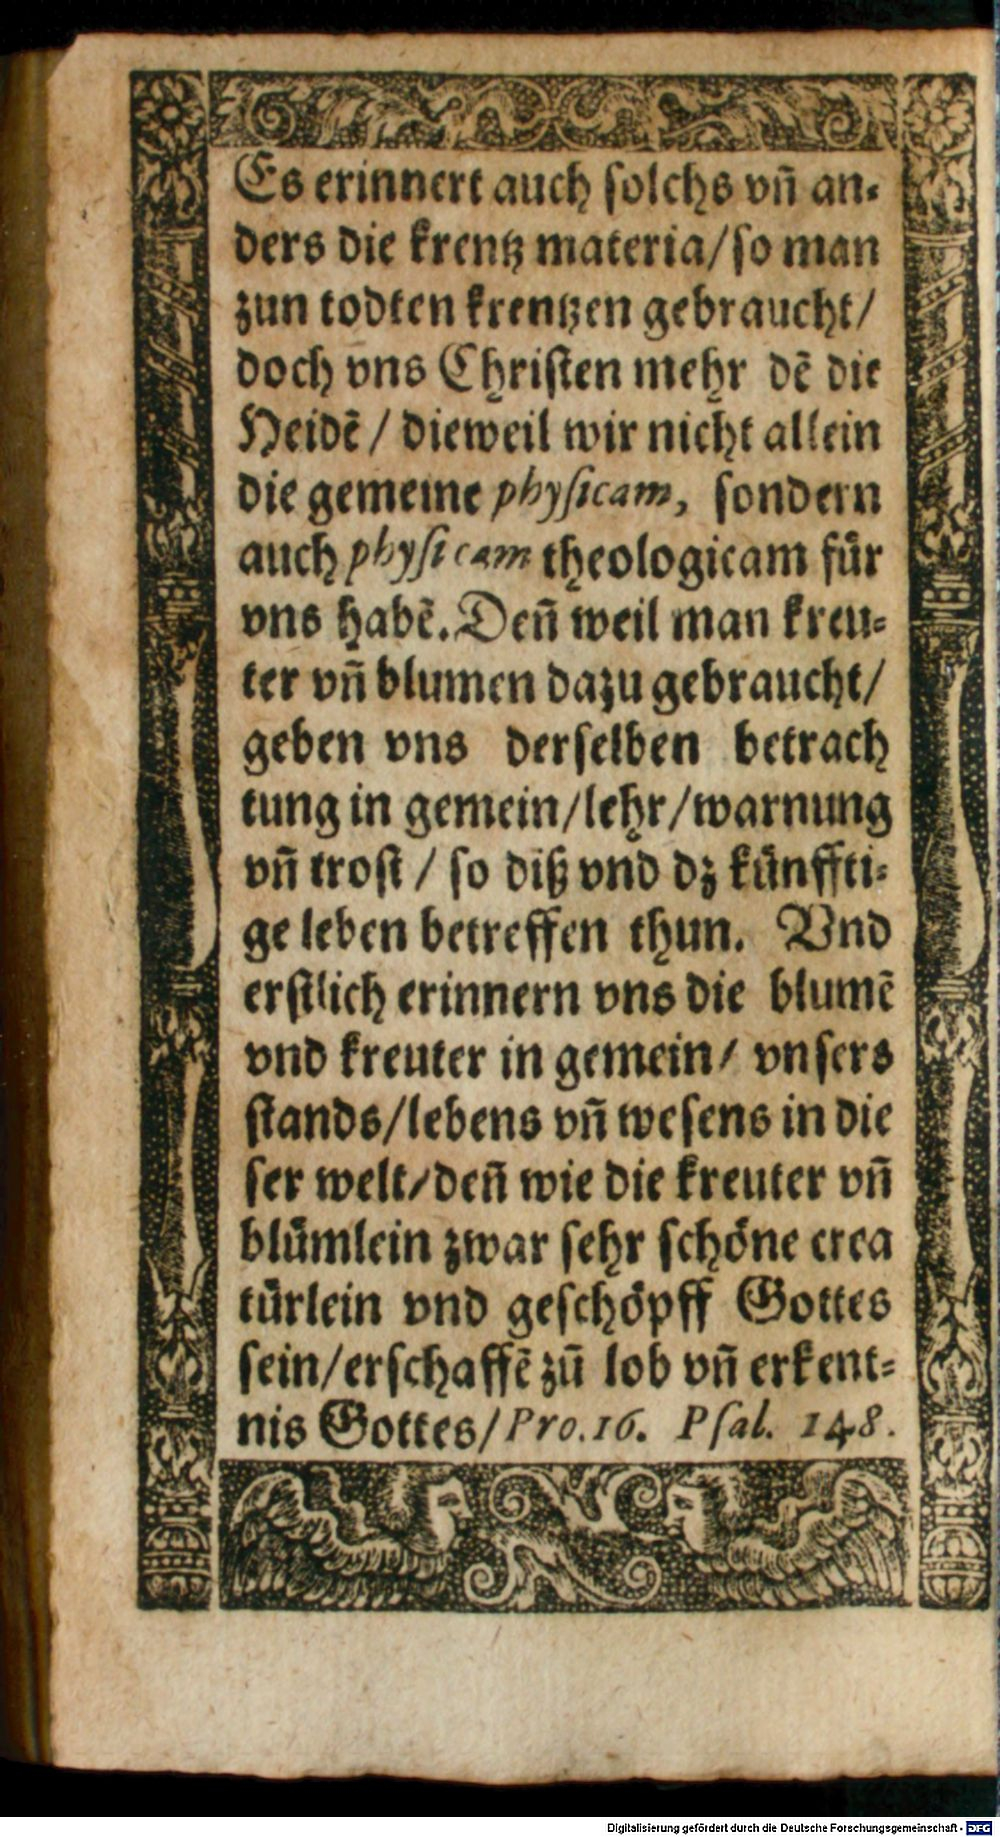 Es erinnert auch ſolchs vn̄ an⸗
ders die krentz materia/ſo man
zun todten krentzen gebraucht/
doch vns Chriſten mehr dē die
Heidē / dieweil wir nicht allein
die gemeine phyſicam, ſondern
auch phyſicam theologicam fuͤr
vns habē. Den̄ weil man kreu⸗
ter vn̄ blumen dazu gebraucht/
geben vns derſelben betrach
tung in gemein/lehr/warnung
vn̄ troſt / ſo diß vnd dz kuͤnffti⸗
ge leben betreffen thun. Vnd
erſtlich erinnern vns die blumē
vnd kreuter in gemein/ vnſers
ſtands/lebens vn̄ weſens in die
ſer welt/den̄ wie die kreuter vn̄
bluͤmlein zwar ſehr ſchoͤne crea
tuͤrlein vnd geſchoͤpff Gottes
ſein/erſchaffē zū lob vn̄ erkent⸗
nis Gottes/Pro.16. Pſal. 148.
Digitalisierung gefördert durch die Deutsche Forschungsgemeinschaft - DFG